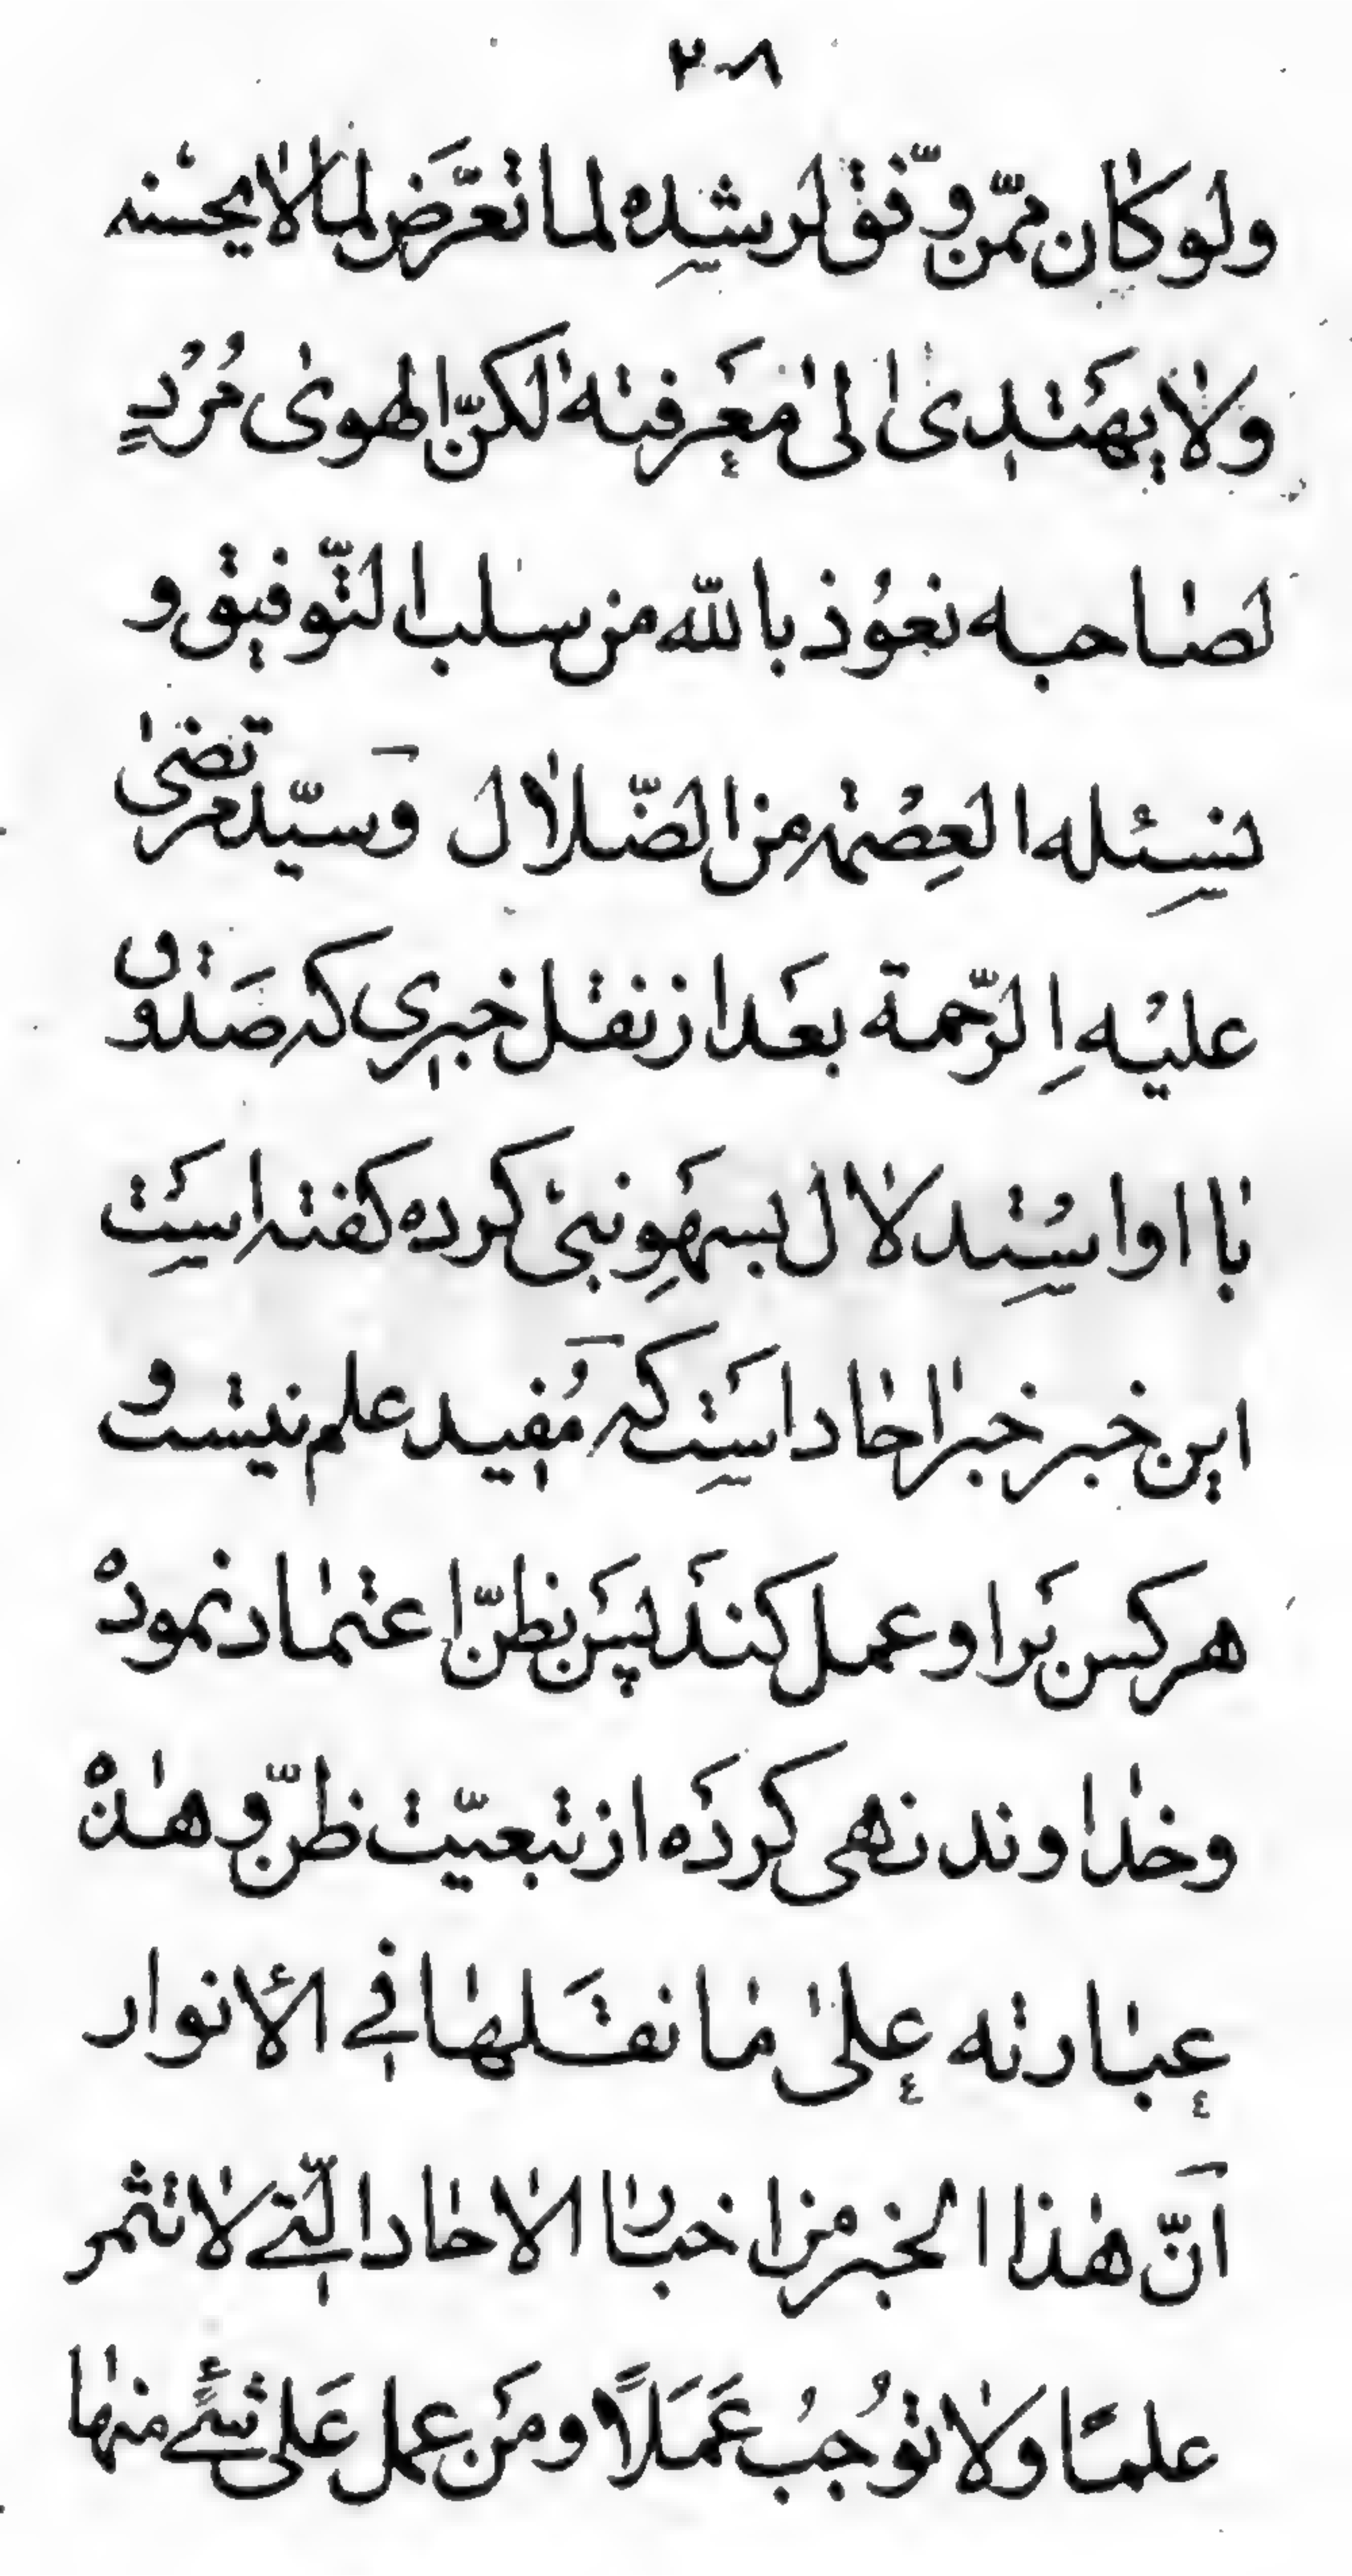 ٢٠٨
ولو كان ممّن وفّق لرشده لما تعرّض لما لا يحسنه
ولا يهتدى الى معرفته لكنّ الهوى مُرْدٍ
لصاحبه نعوذ بالله من سلب التّوفيق و
نسئله العصمة من الضّلال وسيّد مرتضى
عليه الرّحمة بعد از نقل خبرى كه صدوق
با او استدلال بسهو نبى كرده كفته است
اين خبر خبر احاد است كه مفيد علم نيست و
هر كس بر او عمل كند پس بظنّ اعتماد نموده
وخداوند نهى كرده از تبعيّت ظنّ و هذه
عبارته على ما نقلها في الأنوار
انّ هذا الخبر من اخبار الاحاد الّتي لا تثمر
علمًا ولا توجب عَمَلاً ومَن عمل عَلى شئ منها